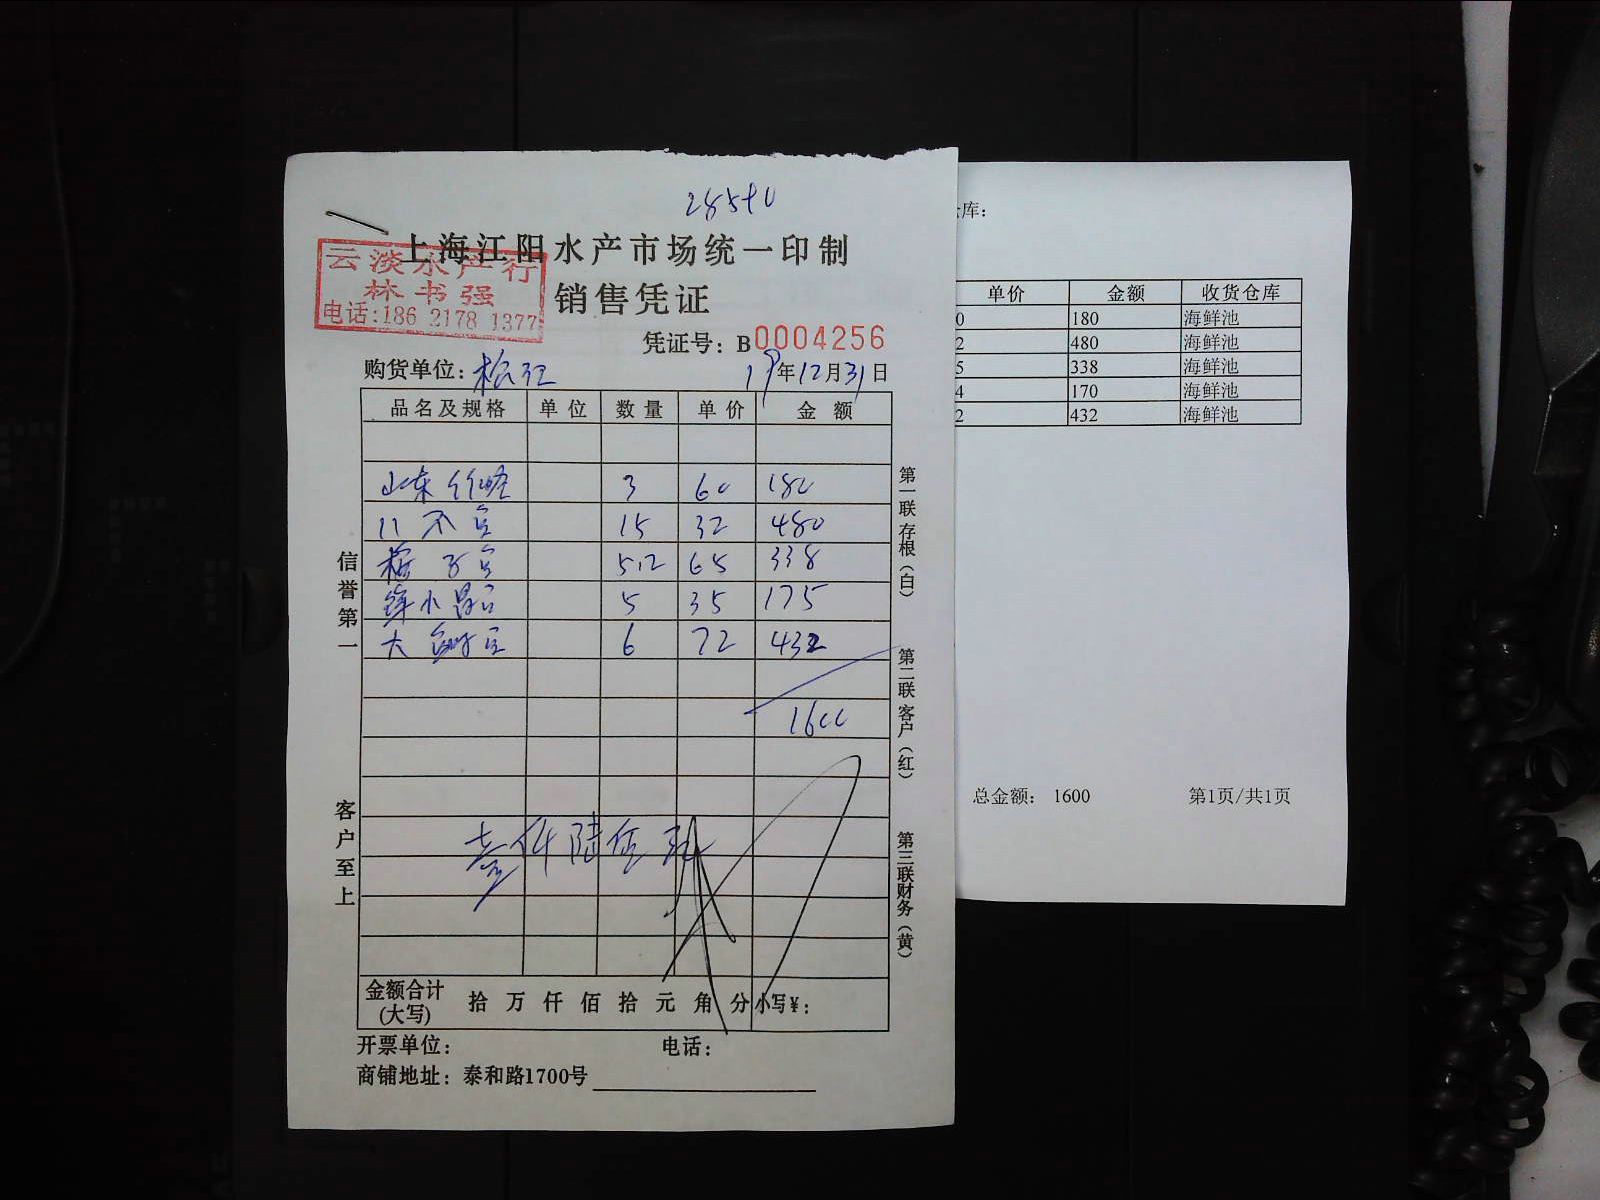 上海江阳水产市场统一印制
云淡水产行
林书强
电话:186 2178 1377
销售凭证
凭证号: B0004256
购货单位:
19年12月31日
品名及规格 单位 数量 单价 金额
山东 3 60 180
15 32 480
5.2 65 338
5 35 175
大 6 72 432
1600
壹仟陆佰
金额合计(大写) 拾 万 仟 佰 拾 元 角 分 小写¥:
开票单位: 电话:
商铺地址: 泰和路1700号
信誉第一
客户至上
第一联存根(白)
第二联客户(红)
第三联财务(黄)
库:
单价 金额 收货仓库
0 180 海鲜池
2 480 海鲜池
5 338 海鲜池
4 170 海鲜池
2 432 海鲜池
总金额: 1600 第1页/共1页